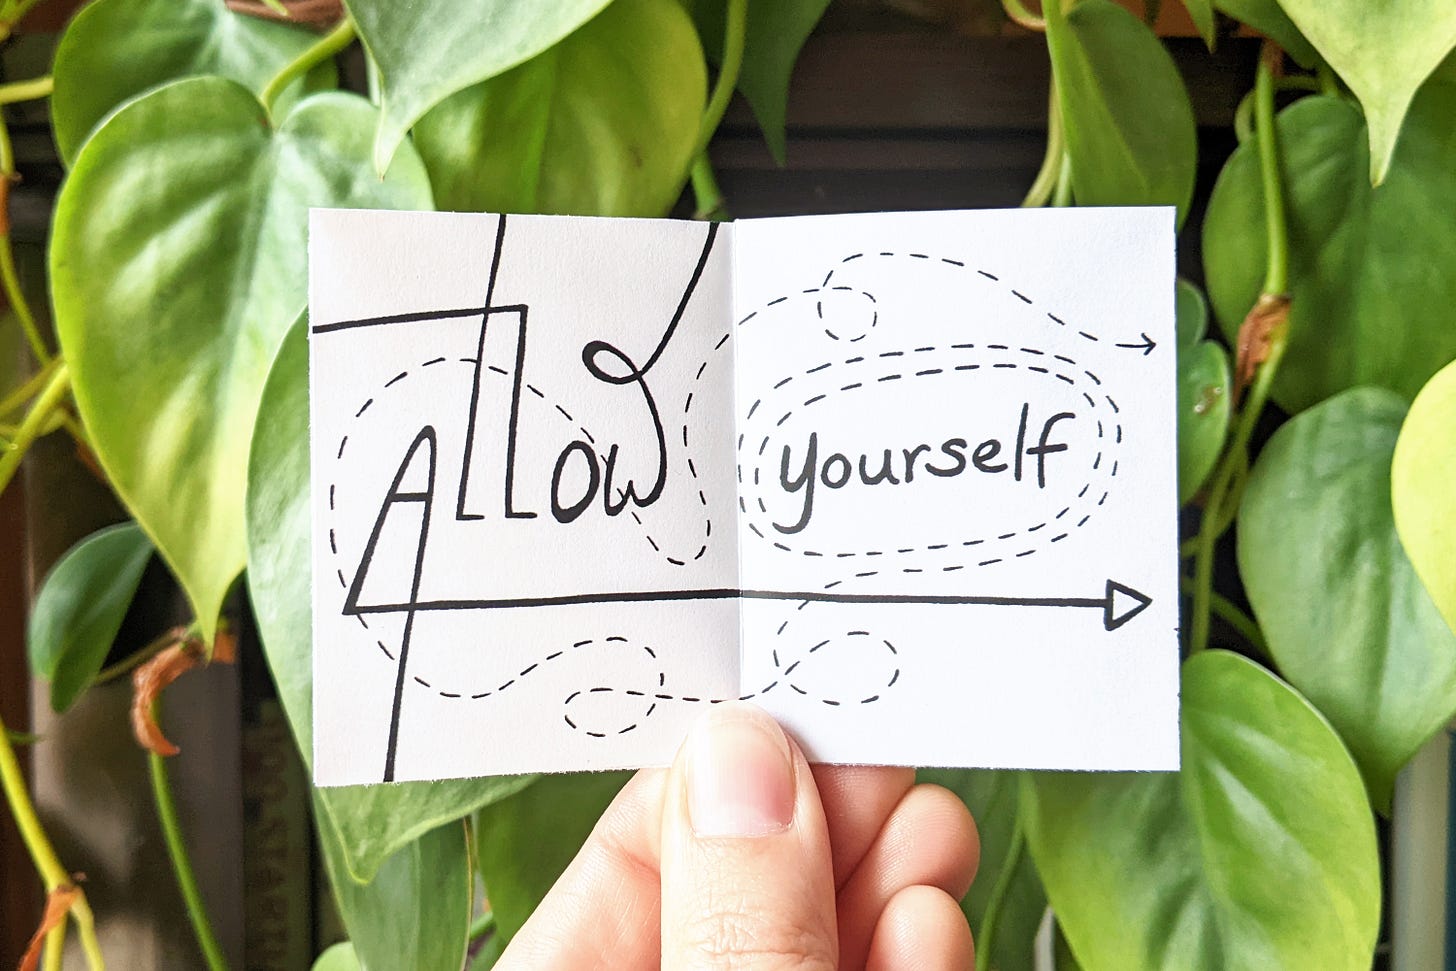 Allow
yourself